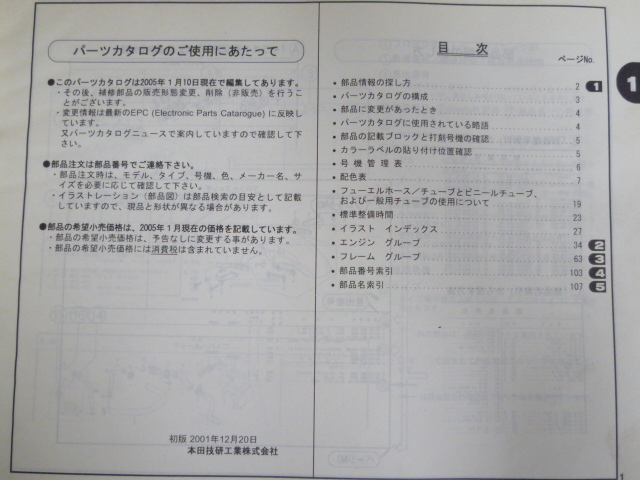 パーツカタログのご使用にあたって
●このパーツカタログは2005年1月10日現在で編集してあります。
・その後、補修部品の販売形態変更、削除（非販売）を行うこ
とがございます。
・変更情報は最新のEPC (Electronic Parts Catarogue) に反映し
ています。
又パーツカタログニュースで案内していますので確認して下
さい。
●部品注文は部品番号でご連絡下さい。
・部品注文時は、モデル、タイプ、号機、色、メーカー名、サ
イズを必要に応じて確認して下さい。
・イラストレーション（部品図）は部品検索の目安として記載
していますので、現品と形状が異なる場合があります。
●部品の希望小売価格は、2005年1月現在の価格を記載しています。
・部品の希望小売価格は、予告なしに変更する事があります。
・部品の希望小売価格には消費税は含まれていません。
初版 2001年12月20日
本田技研工業株式会社
目 次
ページNo.
• 部品情報の探し方 2 1
• パーツカタログの構成 3
• 部品に変更があったとき 4
• パーツカタログに使用されている略語 4
• 部品の記載ブロックと打刻号機の確認 5
• カラーラベルの貼り付け位置確認 5
• 号 機 管 理 表 6
• 配色表 7
• フューエルホース／チューブとビニールチューブ、
および一般用チューブの使用について 19
• 標準整備時間 23
• イラスト インデックス 27
• エンジン グループ 34 2
• フレーム グループ 63 3
• 部品番号索引 103 4
• 部品名索引 107 5
1
1